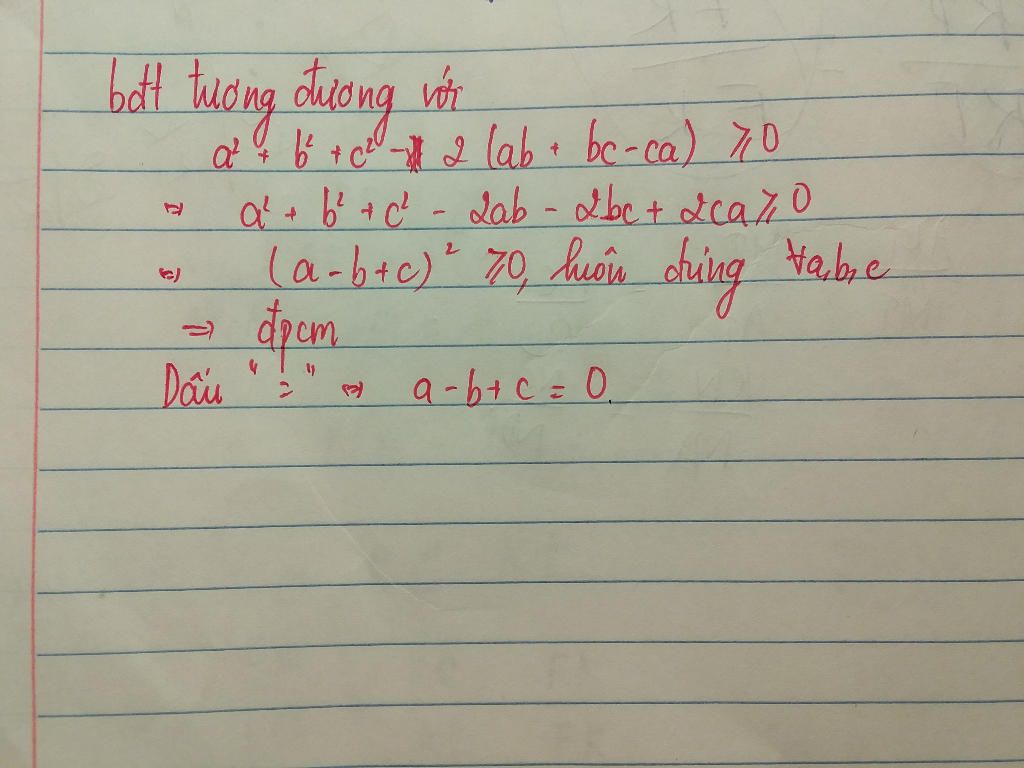 bđt tương đương với
a² + b² + c² - 2 (ab + bc - ca) ⩾ 0
⇔ a² + b² + c² - 2ab - 2bc + 2ca ⩾ 0
⇔ (a - b + c)² ⩾ 0, luôn đúng ∀a,b,c
⇒ đpcm
Dấu "=" ⇔ a - b + c = 0.